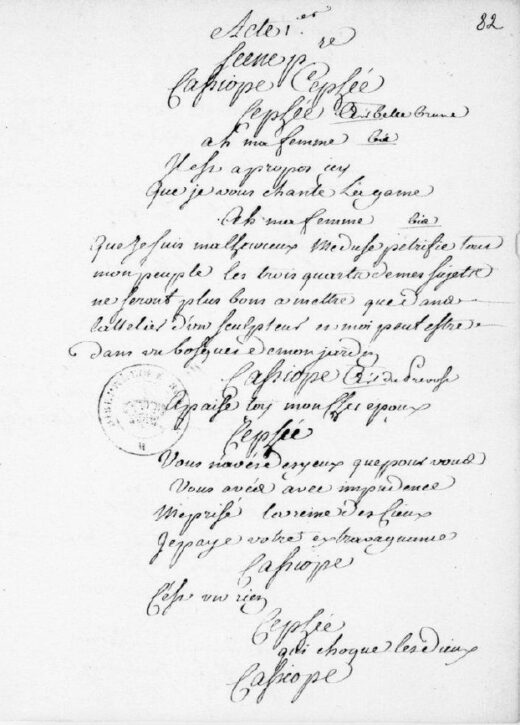 82
Acte 1.er
Scene p.re
Cassiope Cephée
Cephée Air belle brune
ah ma femme bis
Il est a propos icy
Que je vous chante la game
Ah ma femme bis
Que je suis malheureux Meduse petrifie tous
mon peuple les trois quarts de mes sujets
ne seront plus bons a mettre que dans
lattelier d'un sculpteur et moi peut estre
dans un bosquet de mon jardin
Cassiope Air du
apaise toy mon cher epoux
Cephée
Vous n'avéz des yeux que pour vous
Vous avéz avec imprudence
Meprisé la reine des Cieux
Je paye votre extravagance
Cassiope
C'est un rien
Cephée
qui choque les dieux
Cassiope